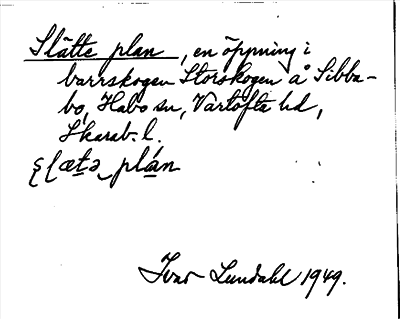 Slätte plan, en öppning i
barrskogen Storskogen å Sibba-
bo, Habo sn, Vartofta hd,
Skarab. l.
plán
Ivar Lundahl 1949.